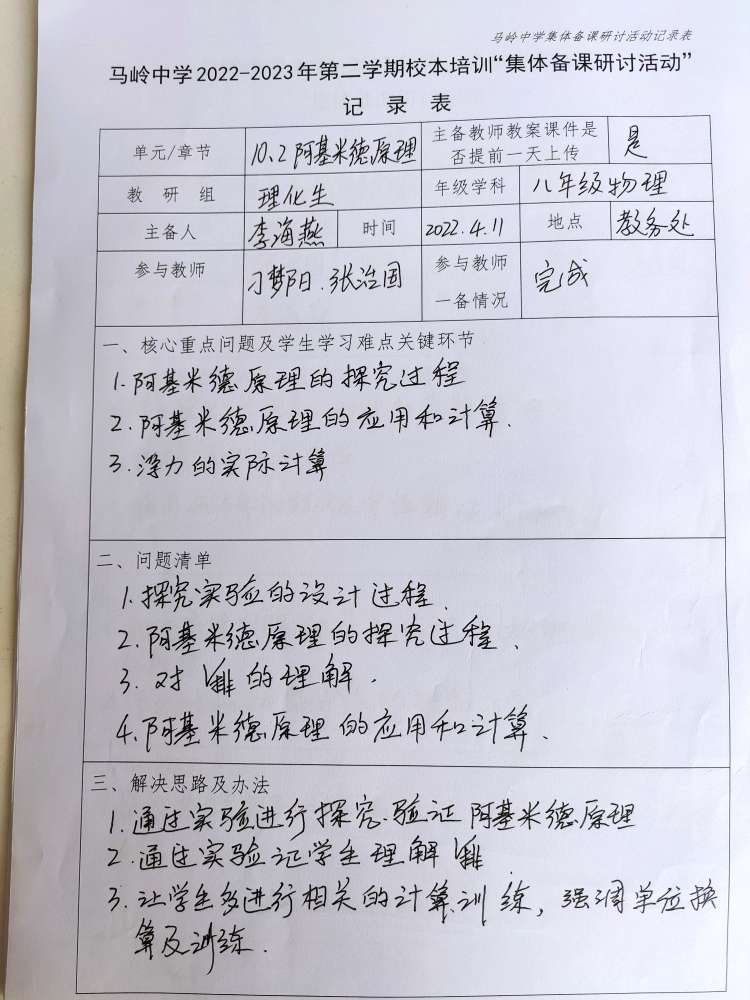 马岭中学集体备课研讨活动记录表
马岭中学2022-2023年第二学期校本培训“集体备课研讨活动”
记 录 表
单元/章节 10.2阿基米德原理 主备教师教案课件是否提前一天上传 是
教 研 组 理化生 年级学科 八年级物理
主备人 李海燕 时间 2022.4.11 地点 教务处
参与教师 刁梦阳.张治国 参与教师一备情况 完成
一、核心重点问题及学生学习难点关键环节
1.阿基米德原理的探究过程
2.阿基米德原理的应用和计算.
3.浮力的实际计算
二、问题清单
1.探究实验的设计过程.
2.阿基米德原理的探究过程.
3.对V排的理解.
4.阿基米德原理的应用和计算.
三、解决思路及办法
1.通过实验进行探究.验证阿基米德原理
2.通过实验让学生理解V排
3.让学生多进行相关的计算训练，强调单位换
算及训练.